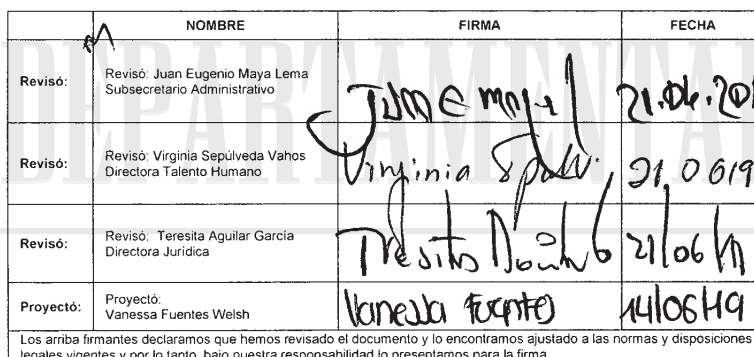 DEPARTAMENTAL
NOMBRE FIRMA FECHA
Revisó: Revisó: Juan Eugenio Maya Lema
Subsecretario Administrativo
Juan E Maya L 21.06.20
Revisó: Revisó: Virginia Sepúlveda Vahos
Directora Talento Humano
Virginia 21.0619
Revisó: Revisó: Teresita Aguilar García
Directora Jurídica
21/06/19
Proyectó: Proyectó:
Vanessa Fuentes Welsh
Vanessa Fuentes 14/06/19
Los arriba firmantes declaramos que hemos revisado el documento y lo encontramos ajustado a las normas y disposiciones
legales vigentes y por lo tanto, bajo nuestra responsabilidad lo presentamos para la firma